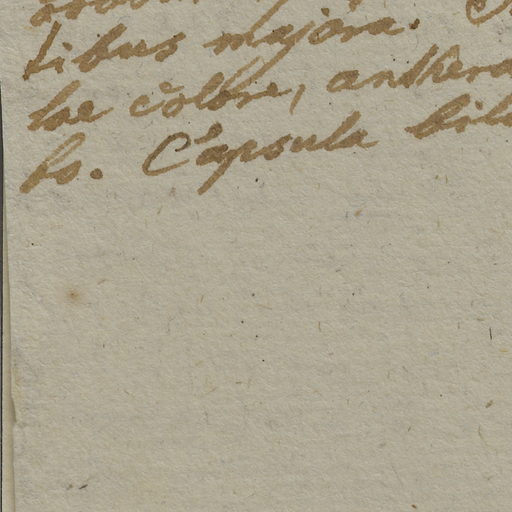 tibus majora.
lae colore, anthera
bo. Capsula bilo